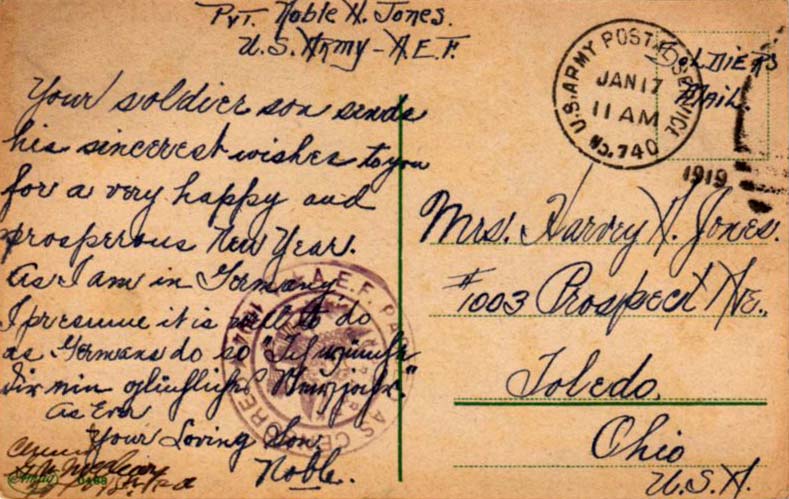 Pvt. Noble H. Jones.
U.S. Army - A.E.F.
Soldiers
Mail.
U.S. ARMY POST SERVICE
JAN 17
11 AM
No. 740
1919
Your soldier son sends
his sincerest wishes to you
for a very happy and
prosperous New Year.
As I am in Germany,
I presume it is well to do
as Germans do so "Ich wünsche
dir ein glückliches Neujahr."
As Ever
Your Loving Son
Noble.
Mrs. Harvey H. Jones.
#1003 Prospect Ave.,
Toledo,
Ohio
U.S.A.
A.E.F. PASSED AS CENSORED